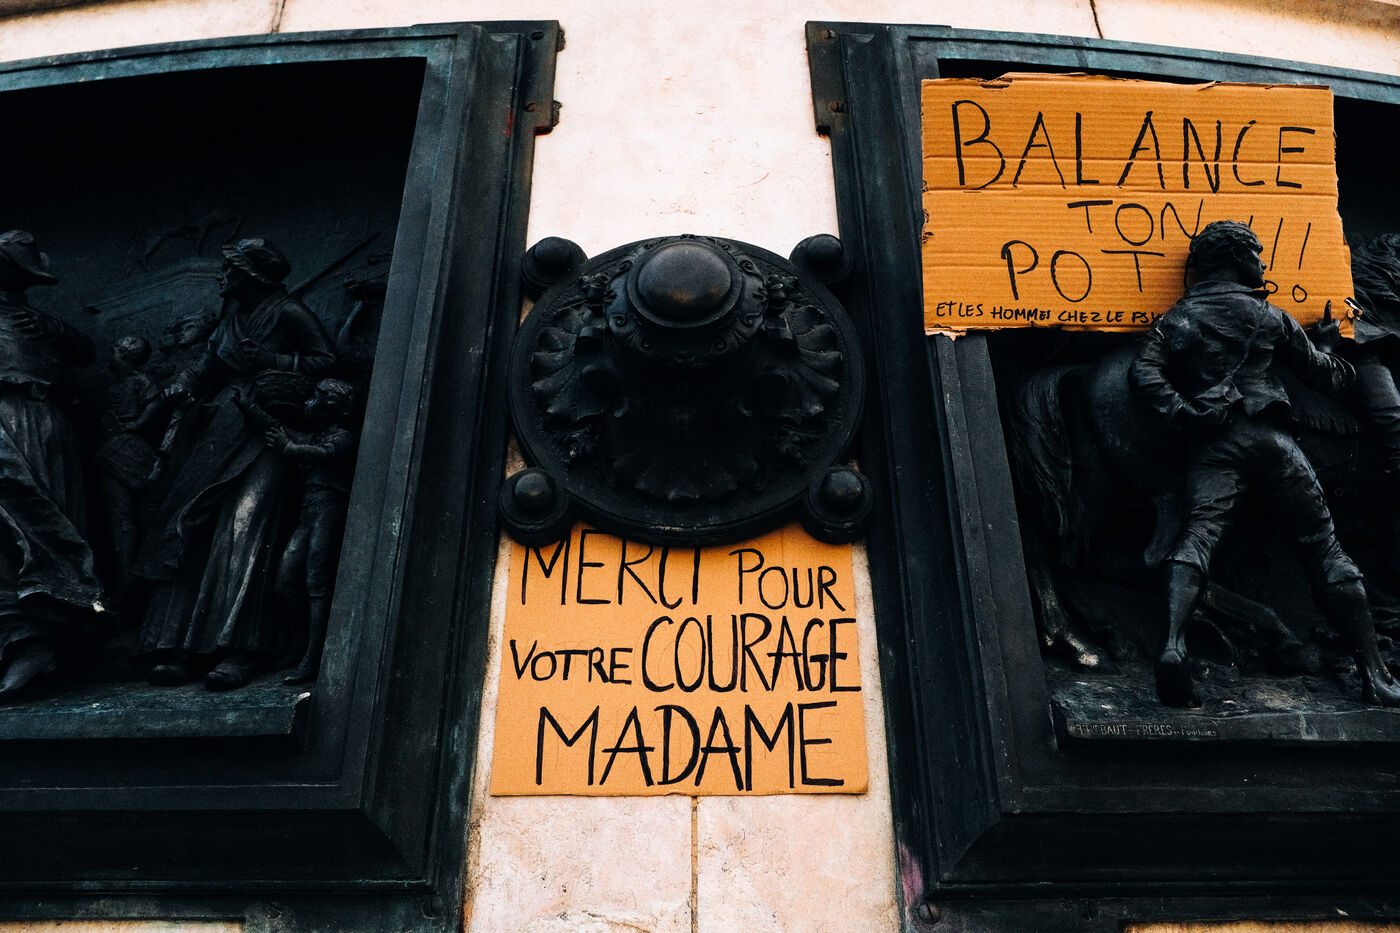 BALANCE
TON
POT !!!
ET LES HOMMES CHEZ LE PSY
MERCI POUR
VOTRE COURAGE
MADAME
THIEBAUT-FRÈRES-Fondeurs